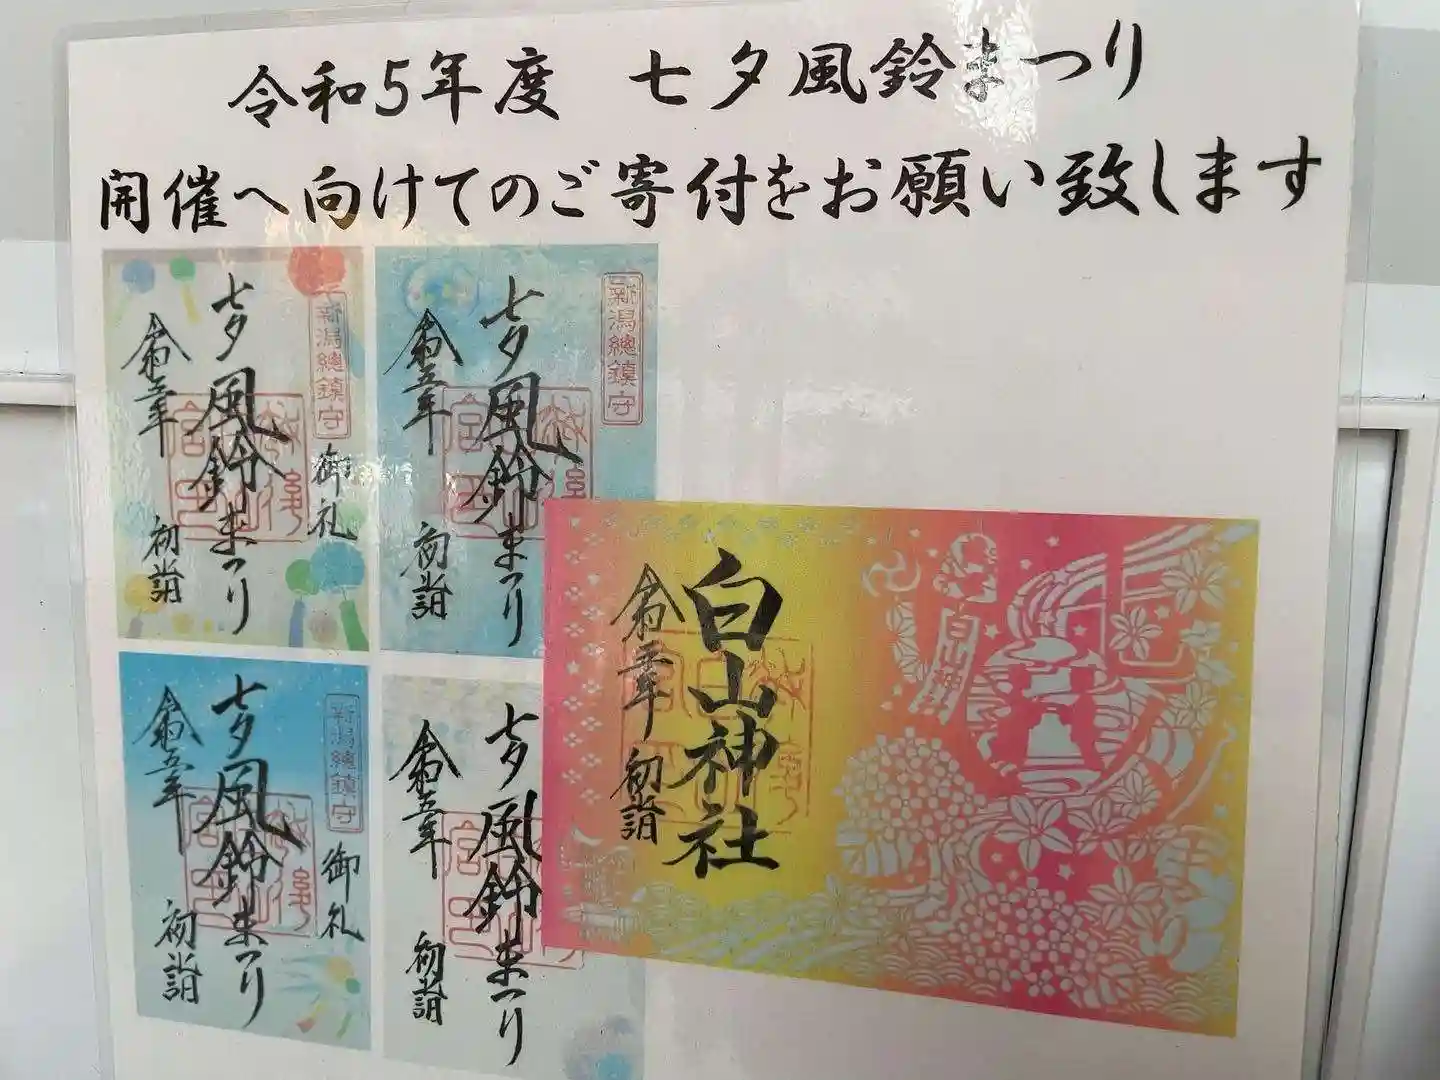 令和5年度 七夕風鈴まつり
開催へ向けてのご寄付をお願い致します
新潟總鎮守
御礼
七夕風鈴まつり
令和五年
初詣
新潟總鎮守
七夕風鈴まつり
令和五年
初詣
新潟總鎮守
御礼
七夕風鈴まつり
令和五年
初詣
七夕風鈴まつり
令和五年
初詣
白山神社
令和五年
初詣
白山神社